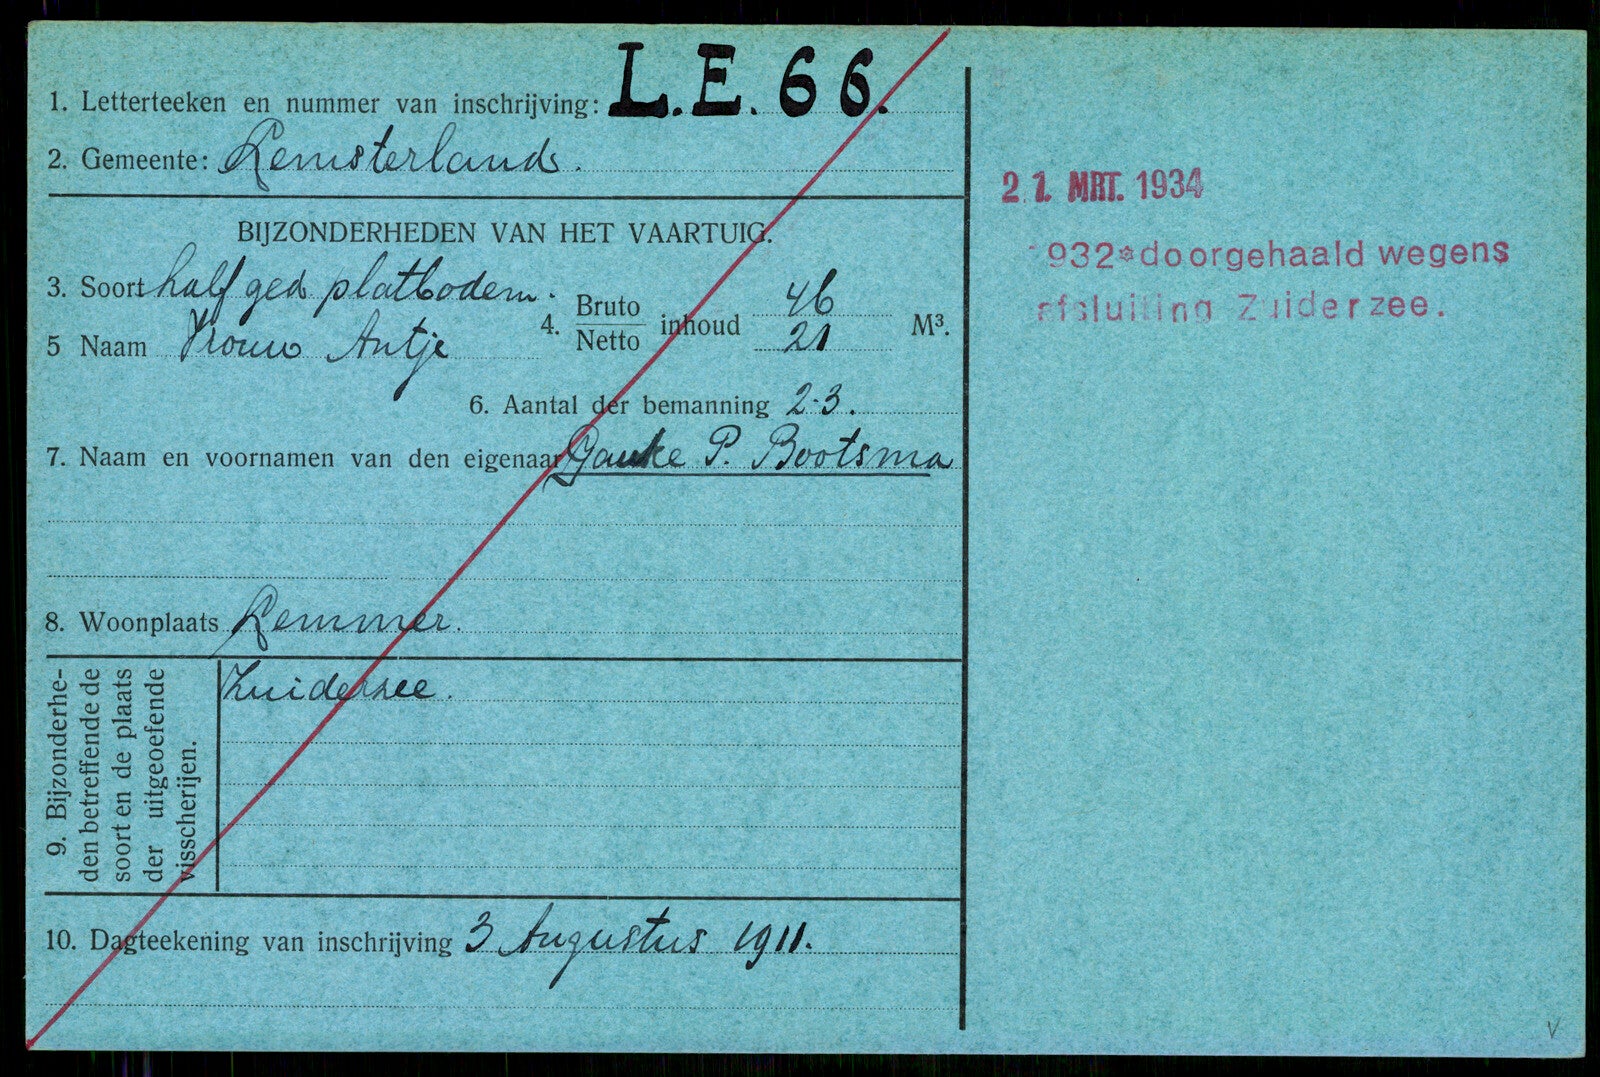 1. Letterteeken en nummer van inschrijving: L.E. 66.
2. Gemeente: Lemsterland.
BIJZONDERHEDEN VAN HET VAARTUIG.
3. Soort half ged platbodem.
4. Bruto inhoud 46
Netto 21 M³.
5 Naam Vrouw Antje
6. Aantal der bemanning 2-3.
7. Naam en voornamen van den eigenaar Gauke P. Bootsma
8. Woonplaats Lemmer.
9. Bijzonderhe-
den betreffende de
soort en de plaats
der uitgeoefende
visscherijen.
Zuiderzee.
10. Dagteekening van inschrijving 3 Augustus 1911.
21. MRT. 1934
932* doorgehaald wegens
afsluiting Zuiderzee.
V